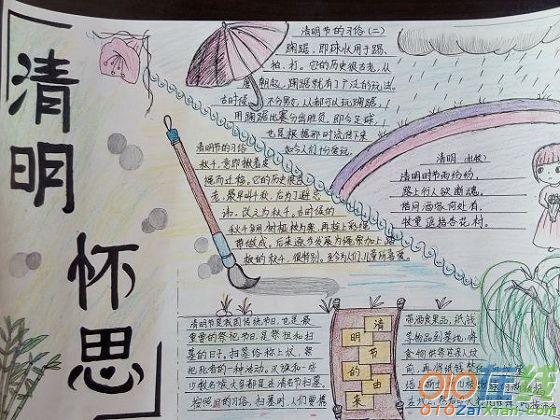 清明
怀思
清明节的习俗(二)
蹴鞠,即球状用于踢,
拍、打。它的历史很古老,从
朝起,蹴鞠就有了广泛的玩法。
古时候,不分男女,人都可以玩蹴鞠,
用蹴鞠比赛分出胜负,即今足球,
也是根据那时流传下来
如今人们均爱玩。
清明节的习俗
秋千,意即揪着皮
绳而迁移。它的历史很古
老,最早叫千秋,后为了避忌
讳,改之为秋千。古时候的
秋千多用树桠枝为架,再拴上彩绳
带做成。后来逐步发展为绳索加上踏
板的秋千,很特别。至今为人们、儿童所喜爱
清明 (杜牧)
清明时节雨纷纷,
路上行人欲断魂。
借问酒家何处有,
牧童遥指杏花村。
清明节是我国传统节日,也是最
重要的祭祀节日,是祭祖和扫
墓的日子。扫墓俗称上坟,祭
祀死者的一种活动。汉族和一些
少数民族大多都是在清明节扫墓。
按照旧的习俗,扫墓时,人们要携
清明节的由来
带酒食果品、纸钱
等物品到墓地,将
食物供祭在亲人坟
前,再将纸钱焚化
010在线
010zaixian.com